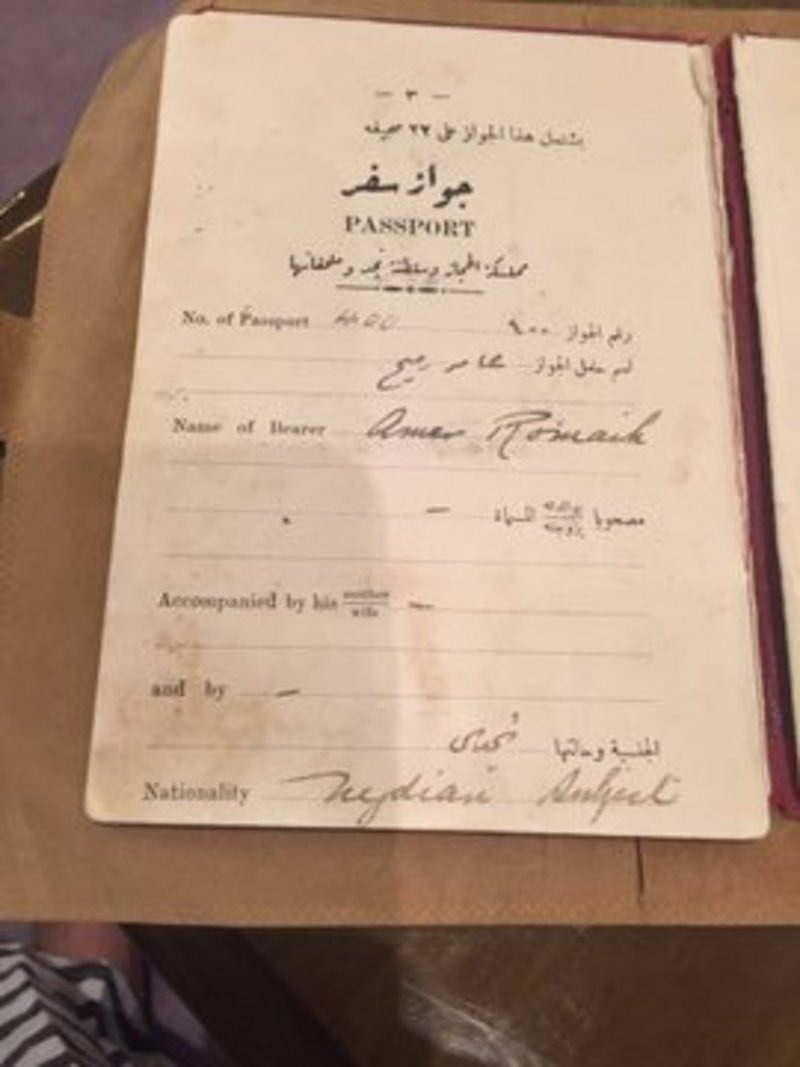 — ٣ —
يشتمل هذا الجواز على ٣٢ صحيفه
جواز سفر
PASSPORT
مملكة الحجاز وسلطنة نجد وملحقاتها
No. of Passport 400 رقم الجواز ٩٠٠
اسم حامل الجواز عامر رميح
Name of Bearer Amer Romaih
مصحوبا بوالدته بزوجته المسماة —
Accompanied by his mother wife —
and by —
الجنسية وحالتها نجدى
Nationality Nejdian Subject